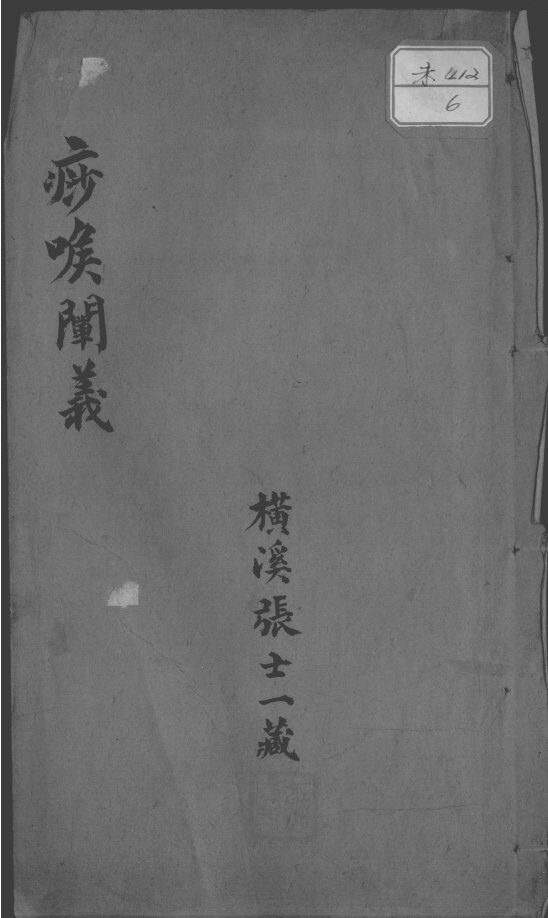 未 412
6
痧喉闡義
橫溪張士一藏